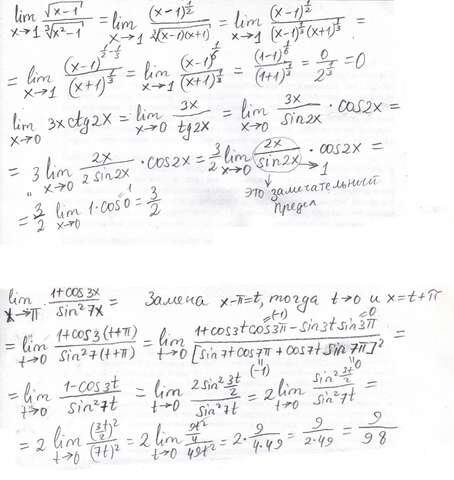 lim x→1 √(x-1) / ∛(x²-1) = lim x→1 (x-1)^(1/2) / ∛((x-1)(x+1)) = lim x→1 (x-1)^(1/2) / ((x-1)^(1/3) (x+1)^(1/3)) =
= lim x→1 (x-1)^(1/2 - 1/3) / (x+1)^(1/3) = lim x→1 (x-1)^(1/6) / (x+1)^(1/3) = (1-1)^(1/6) / (1+1)^(1/3) = 0 / 2^(1/3) = 0
lim x→0 3x ctg2x = lim x→0 3x / tg2x = lim x→0 3x / sin2x · cos2x =
= 3 lim x→0 2x / (2 sin2x) · cos2x = 3/2 lim x→0 2x / sin2x →1 · cos2x =
= 3/2 lim x→0 1·cos0 = 3/2
это замечательный
предел
lim x→π (1+cos3x) / sin²7x = Замена x-π=t, тогда t→0 и x=t+π
= lim t→0 (1+cos3(t+π)) / sin²7(t+π) = lim t→0 (1+cos3t cos3π - sin3t sin3π) / [sin7t cos7π + cos7t sin7π]² =
=(-1) =0
(-1) 0
= lim t→0 (1-cos3t) / sin²7t = lim t→0 2sin²(3t/2) / sin²7t = 2 lim t→0 sin²(3t/2) / sin²7t =
= 2 lim t→0 (3t/2)² / (7t)² = 2 lim t→0 (9t²/4) / 49t² = 2 · 9 / (4·49) = 9 / (2·49) = 9/98